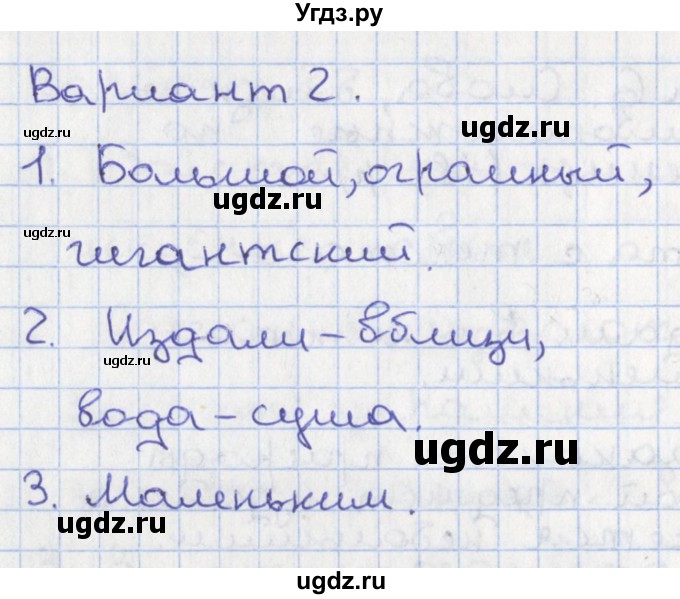 Угдз.ру
Вариант 2.
ugdz.ru
ugdz.ru
1. Большой, огромный,
ugdz.ru
ugdz.ru
гигантский.
2. Издали – вблизи,
ugdz.ru
вода – суша.
ugdz.ru
3. Маленьким.
ugdz.ru
ugdz.ru